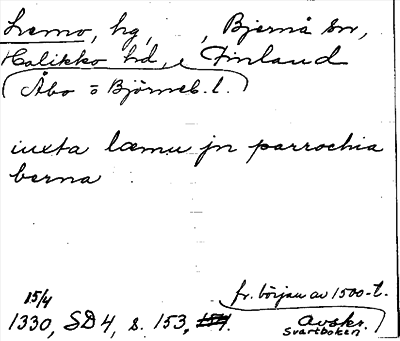 Lemo, hg, , Bjernå sn,
Halikko hd, Finland
(Åbo o Björneb. l.)
iuxta læmu jn parrochia
berna
fr. början av 1500-t.
15/4
1330, SD 4, s. 153, 154. avskr.
Svartboken